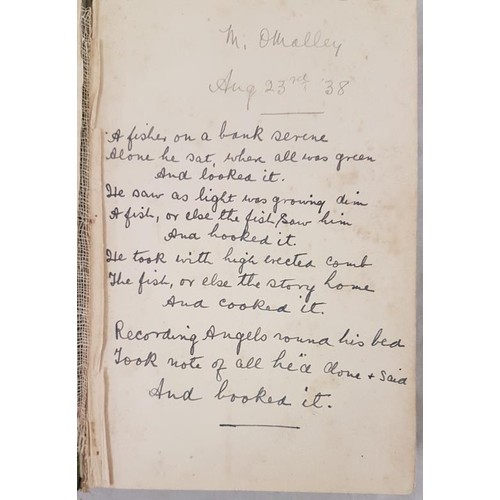 M. OMalley
Aug 23rd. '38
A fisher on a bank serene
Alone he sat, when all was green
And looked it.
He saw as light was growing dim
A fish, or else the fish saw him
And hooked it.
He took with high erected comb
The fish, or else the story home
And cooked it.
Recording Angels round his bed
Took note of all he'd done + said
And booked it.